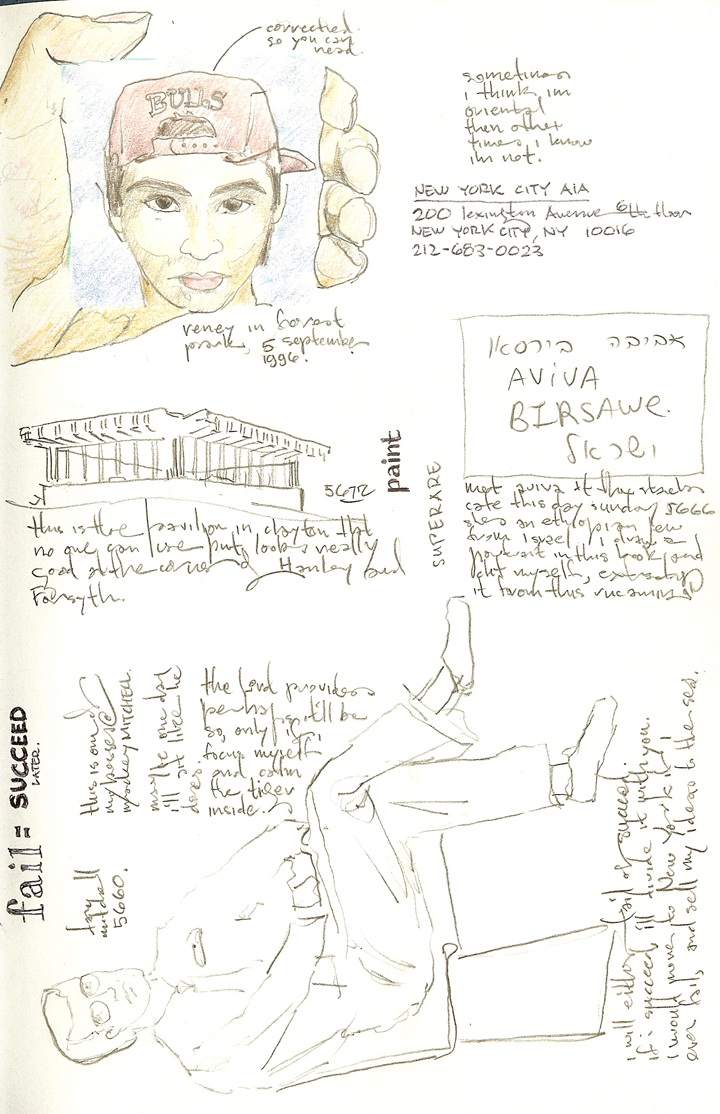 corrected
so you can
read.
BULLS
sometimes
i think im
oriental
then other
times, i know
im not.
NEW YORK CITY AIA
200 lexington Avenue 6th floor
NEW YORK CITY, NY 10016
212-683-0023
reney in forest
park, 5 september
1996.
אביבה בירסאו
AVIVA
BIRSAWe.
ישראל
5672
paint
SUPERARE
this is the pavilion in clayton that
no one can use but looks really
good at the corner of Hanley and
Forsyth.
met aviva at the
cafe this day sunday 5666
shes an ethiopian jew
from Israel. i drew a
portrait in this book and
myself,
it from this
fail = SUCCEED
LATER.
this is one of
my bosses
mackey MITCHELL.
maybe one day
i'll sit like he
does.
the lord provides
perhaps it'll be
so, only if i
focus myself
and calm
the tiger
inside.
5660.
i will either fail or succeed.
if i succeed, ill divide it with you.
i would move to New York if i
ever fail, and sell my ideas to the sea.